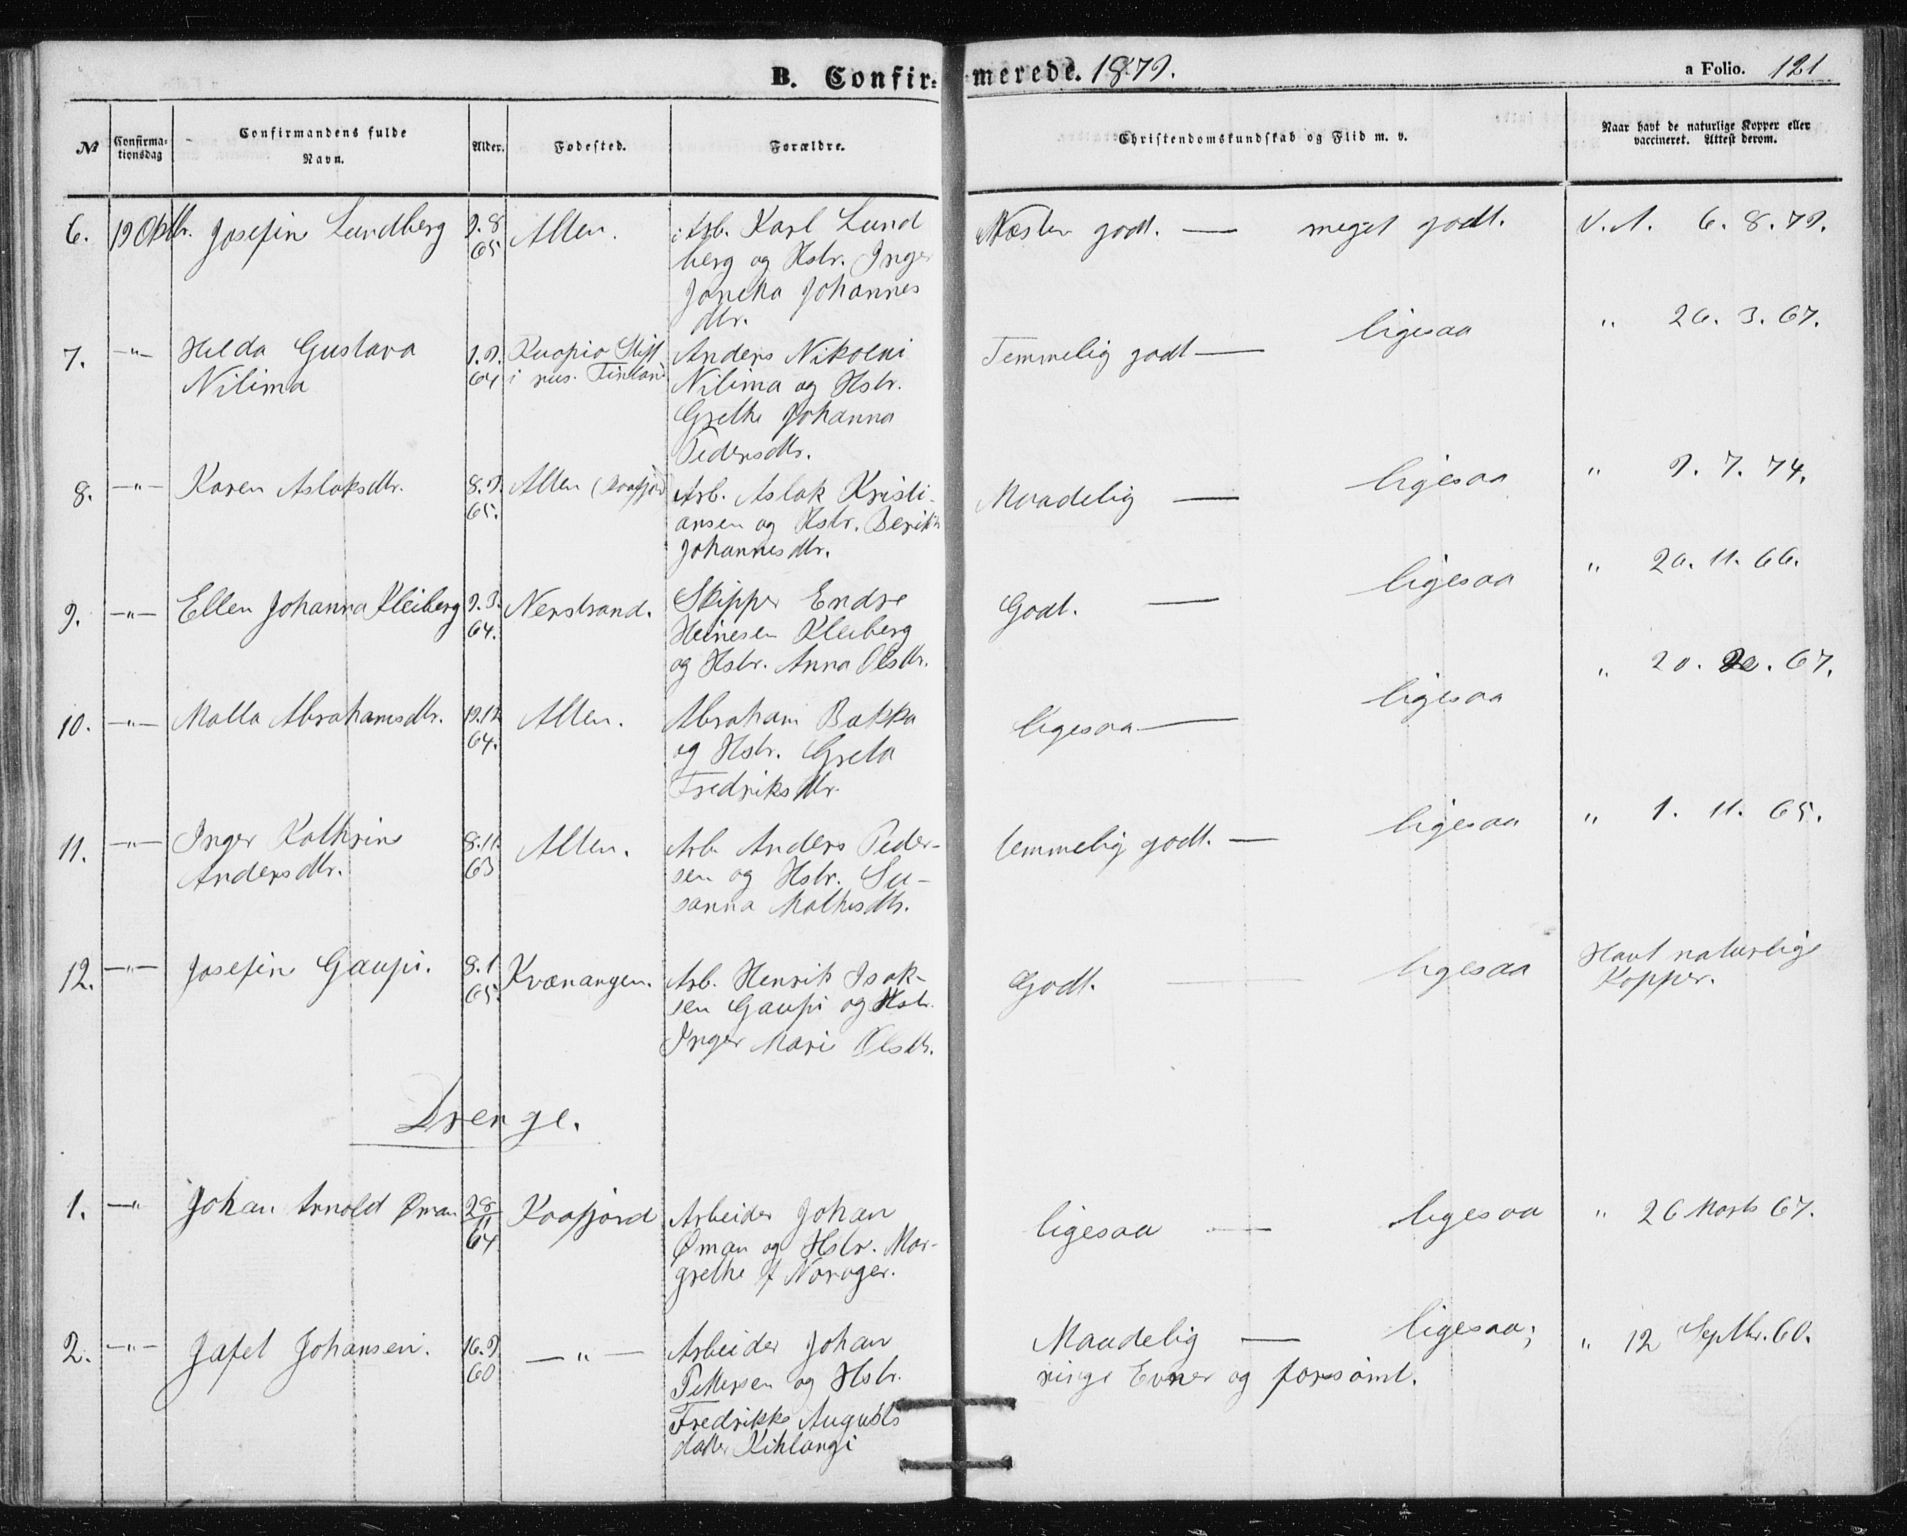 B. Confir- merede. 1879. a Folio. 121
№ Confirma-tionsdag Confirmandens fulde Navn. Alder. Fødested. Forældre. Christendomskundskab og Flid m. v. Naar havt de naturlige Kopper eller vaccineret. Attest derom.
6. 19 Oktbr. Josefine Lundberg 9.8 Alten. Arb. Karl Lund Næsten godt. — meget godt. V. A. 6. 8. 79.
65 berg og Hstr. Inger
Johannes
dtr.
7. —"— Hilda Gustava 1.9. Kuopio Stift Anders Nikolai Temmelig godt — ligesaa " 26. 3. 67.
Nilima 64 i rus. Finland Nilima og Hstr.
Grethe Johanna
Pedersdtr.
8. —"— Karen Aslaksdtr. 8.9. Alten (Kaafjord) Arb. Aslak Kristi- Maadelig — ligesaa " 9. 7. 74.
65. ansen og Hstr. Berit
Johannesdtr.
9. —"— Ellen Johanna Kleiberg 9.3. Nerstrand. Skipper Endre Godt. — ligesaa " 20. 11. 66.
64. Heinesen Kleiberg
og Hstr. Anna Olsdtr.
10. —"— Malla Abrahamsdtr. 19.12 Alten. Abraham Bakka ligesaa — ligesaa " 20. 67.
64. og Hstr. Greta
Fredriksdtr.
11. —"— Inger Kathrine 8.11. Alten. Arb. Anders Peder- temmelig godt. — ligesaa " 1. 11. 65.
Andersdtr. 63 sen og Hstr. Su-
sanna Mathisdtr.
12. —"— Josefine Gaupi. 8.1 Kvænangen. Arb. Henrik Isak- Godt. — ligesaa Havt naturlige
65. sen Gaupi og Hstr. Kopper.
Inger Marie Olsdtr.
Drenge.
1. —"— Johan Arnold Øman 28/11 Kaafjord Arbeider Johan ligesaa — ligesaa " 26 Marts 67.
64 Øman og Hstr. Mar-
grethe f Norager.
2. —"— Jafet Johansen. 16.9 —"— Arbeider Johan Maadelig — ligesaa; " 12 Septbr. 60.
60 Pettersen og Hstr. ringe Evner og forsømt.
Fredrikke Augusts
datter Kihlangi